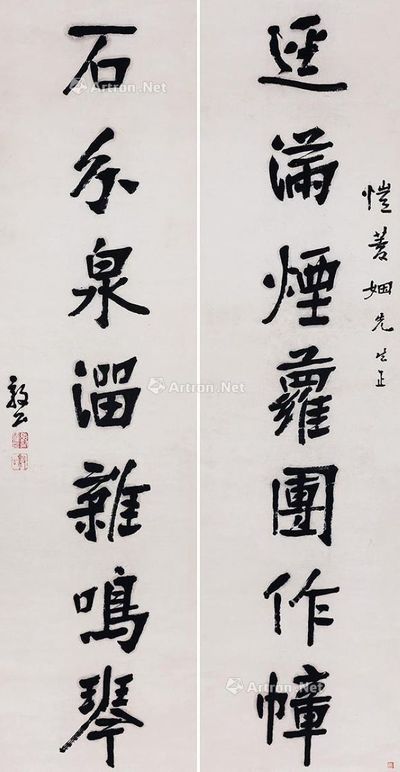 愷菱姻先生正
逕滿煙蘿團作幛
石分泉溜雜鳴琴
Artron.Net
Artron.Net
Artron.Net
Artron.Net